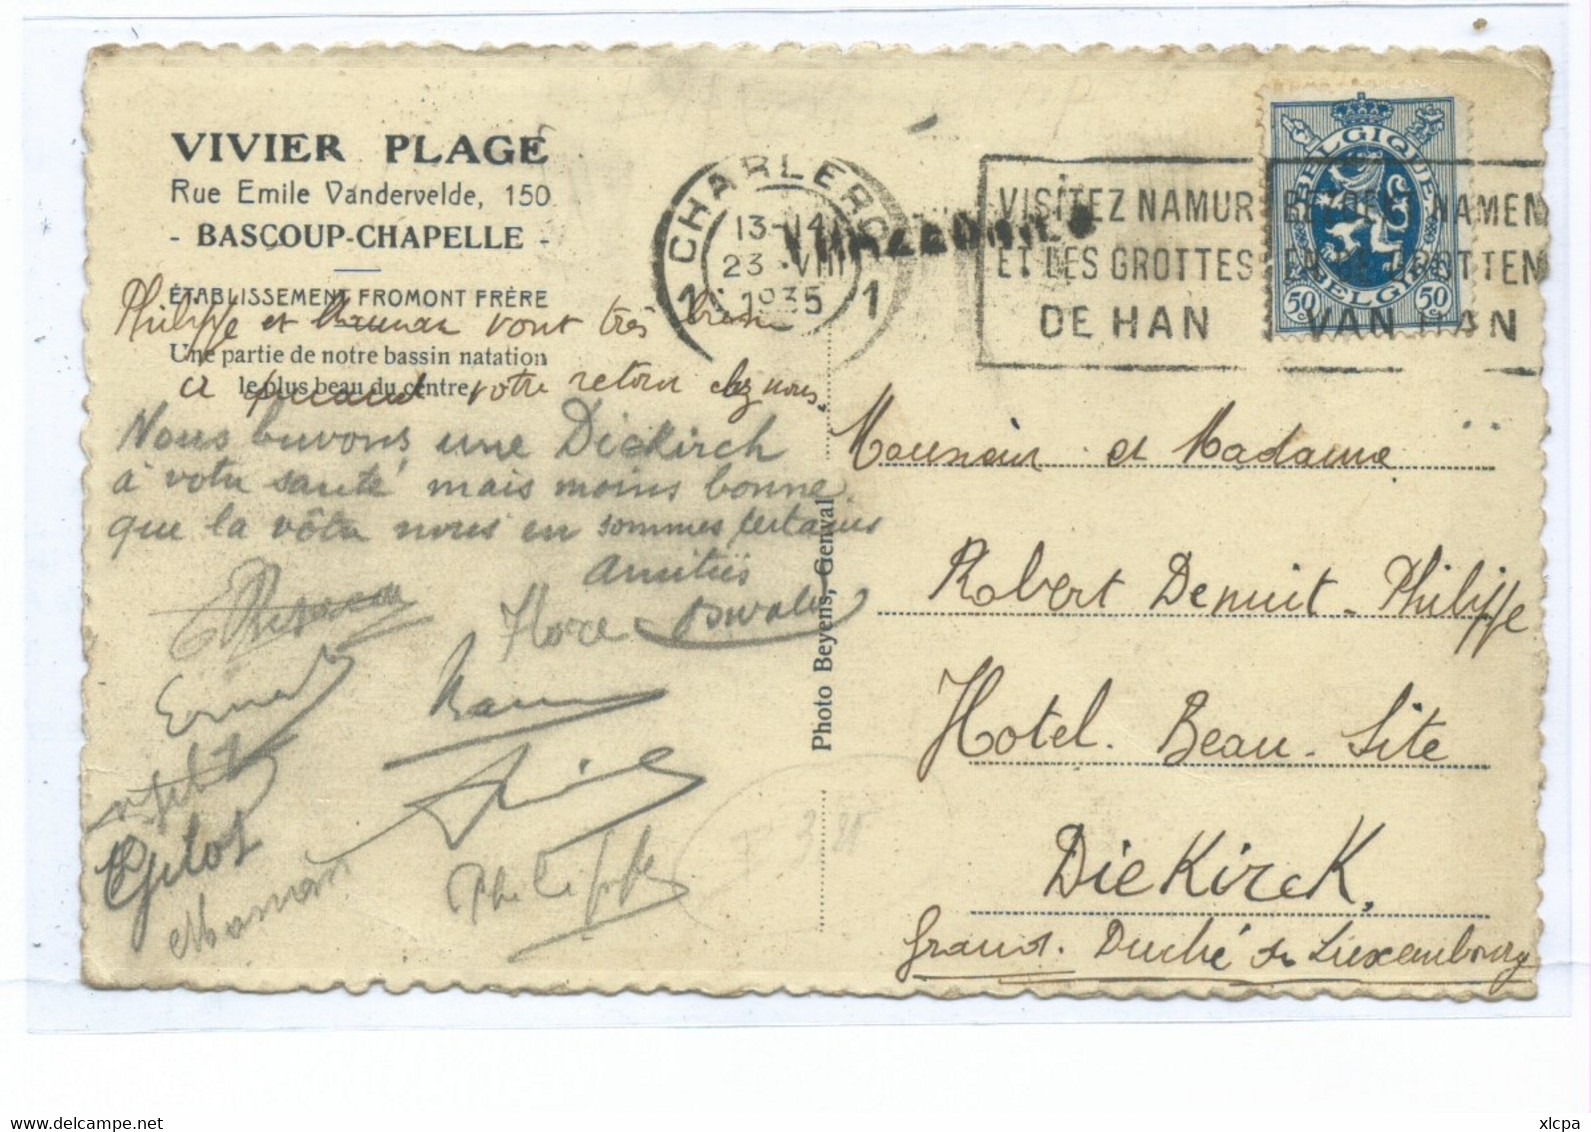 VIVIER PLAGE
Rue Emile Vandervelde, 150
- BASCOUP-CHAPELLE -
ÉTABLISSEMENT FROMONT FRÈRE
Philippe et Maman vont très bien
Une partie de notre bassin natation
le plus beau du centre
et votre retour chez nous.
Nous buvons une Diekirch
à votre santé mais moins bonne
que la vôtre nous en sommes certains
Amitiés
Flore Oswald
Ernest
Gilot
Maman
Philippe
Photo Beyens, Genval
1 CHARLEROI 1
13-14
23 VIII
1935
VISITEZ NAMUR
ET LES GROTTES
DE HAN
BEZOEKT NAMEN
EN DE GROTTEN
VAN HAN
BELGIQUE
BELGIË
50c 50c
Monsieur et Madame
Robert Denuit-Philippe
Hotel. Beau-Site
Diekirck,
Grand. Duché de Luxembourg
delcampe.net
xlcpa